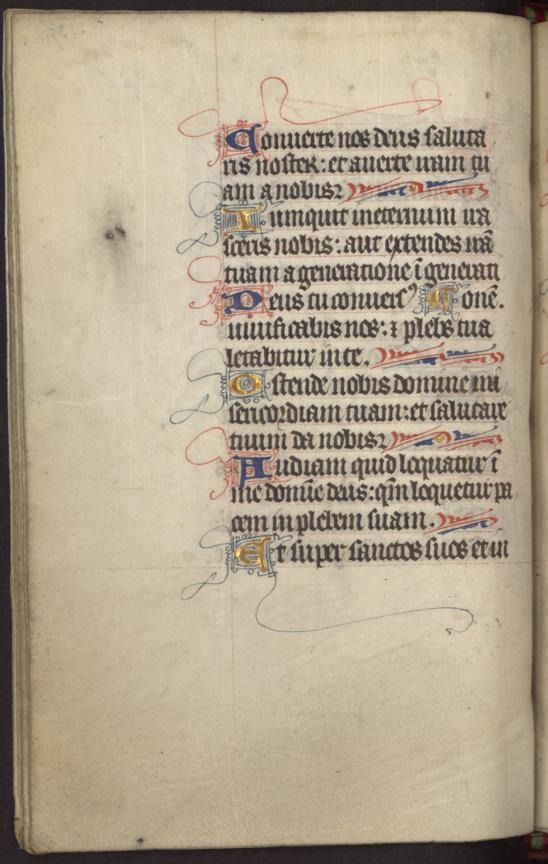 Conuerte nos deus saluta
ris noster: et auerte iram tu
am a nobis
Numquit ineternum ira
sceris nobis: aut extendes irā
tuam a generatione ī generati
Deus tu conuersꝰ onē.
uiuificabis nos: ⁊ plebs tua
letabitur in te.
Ostende nobis domine mi
sericordiam tuam: et salutare
tuum da nobis
Audiam quid loquatur ī
me domīe deus: qm̄ loquetur pa
cem in plebem suam.
Et super sanctos suos et in